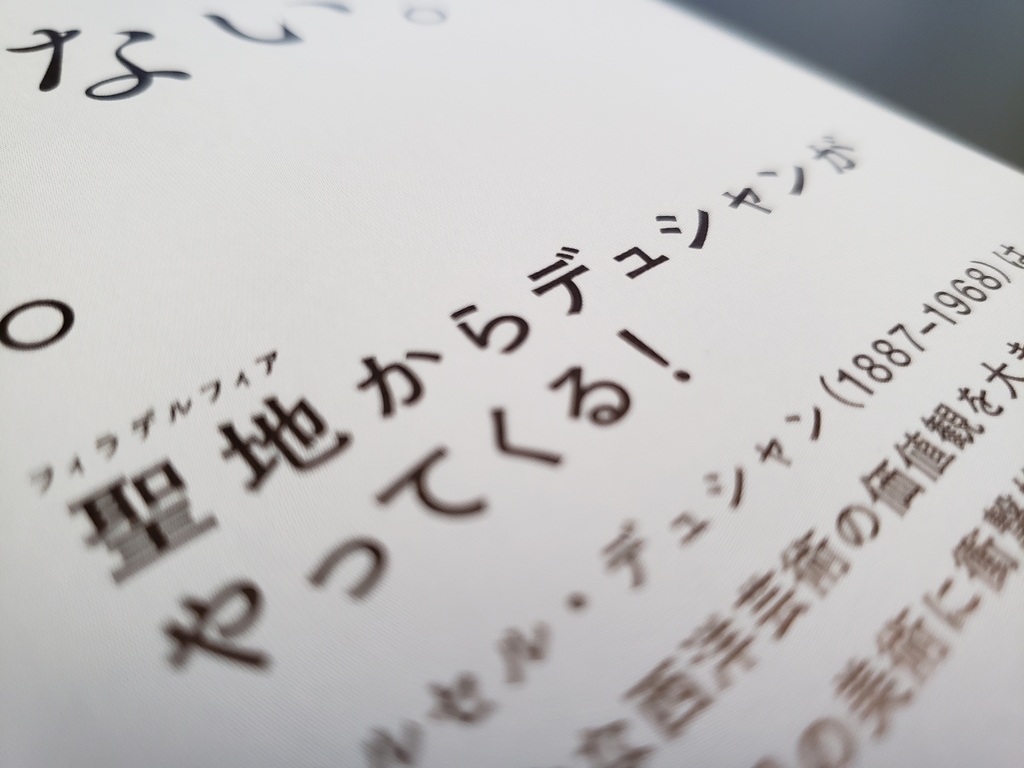 ない。
。
フィラデルフィア
聖地からデュシャンが
やってくる!
ルセル・デュシャン(1887-1968)は
な西洋芸術の価値観を大き
の美術に衝撃